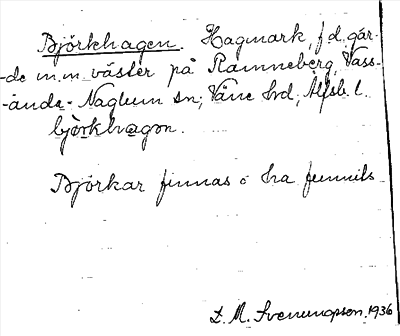 Björkhagen. Hagmark, f.d. gär-
-de m.m. väster på Ramneberg, Vass-
-ända-Naglum sn; Väne hd, Älfsb. l.
bjørkhagon.
Björkar finnas o ha funnits
L. M. Svenungsson 1936